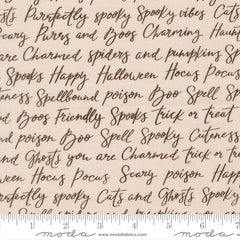 ghosts Purrfectly spooky Spooky vibes Cats
Scary Purrs and Boos Charming Haunt
are Charmed spiders and pumpkins Sp
Spooks Happy Halloween Hocus Pocus
teness Spellbound poison Boo Spell Sp
d Boos Friendly Spooks trick or treat
nd poison Boo Spell Spooky Cuteness
and Ghosts you are Charmed trick or tr
ween Hocus Pocus Scary poison Happ
rrfectly spooky Cats and Ghosts Spooky
1 2 3 4 5 6
moda www.modafabrics.com moda